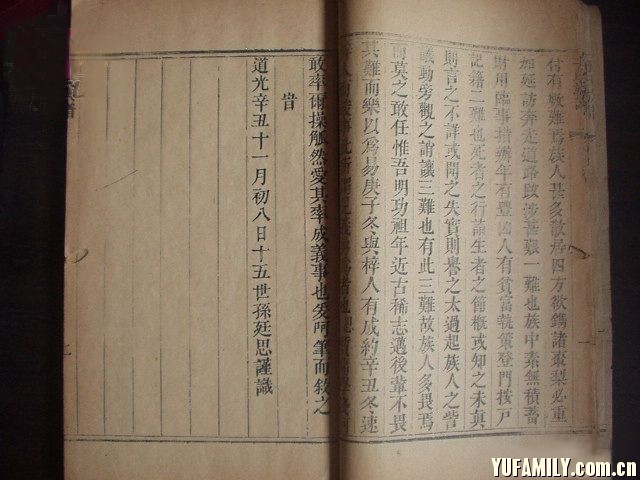 付有數難焉族人甚多散處四方欲鐫諸棗梨必重
加延訪奔走道路跋涉甚艱一難也族中素無積蓄
財用臨事措辦年有豐凶人有貧富執策登門按戶
記籍二難也死者之行誼生者之節槪或知之未眞
則言之不詳或聞之失實則譽之太過起族人之訾
議動旁觀之誚讓三難也有此三難故族人多畏焉
而莫之敢任惟吾明功祖年近古稀志邁後輩不畏
其難而樂以爲易庚子冬與梓人有成約辛丑冬速
敢率爾操觚然愛其率成義事也爰呵筆而敘之
旹
道光辛丑十一月初八日十五世孫廷思謹識
YUFAMILY.com.cn